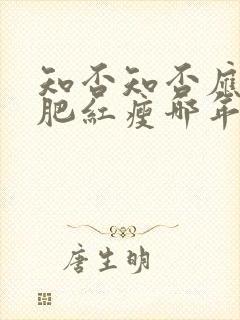 知否知否應
肥紅瘦那年
唐生明